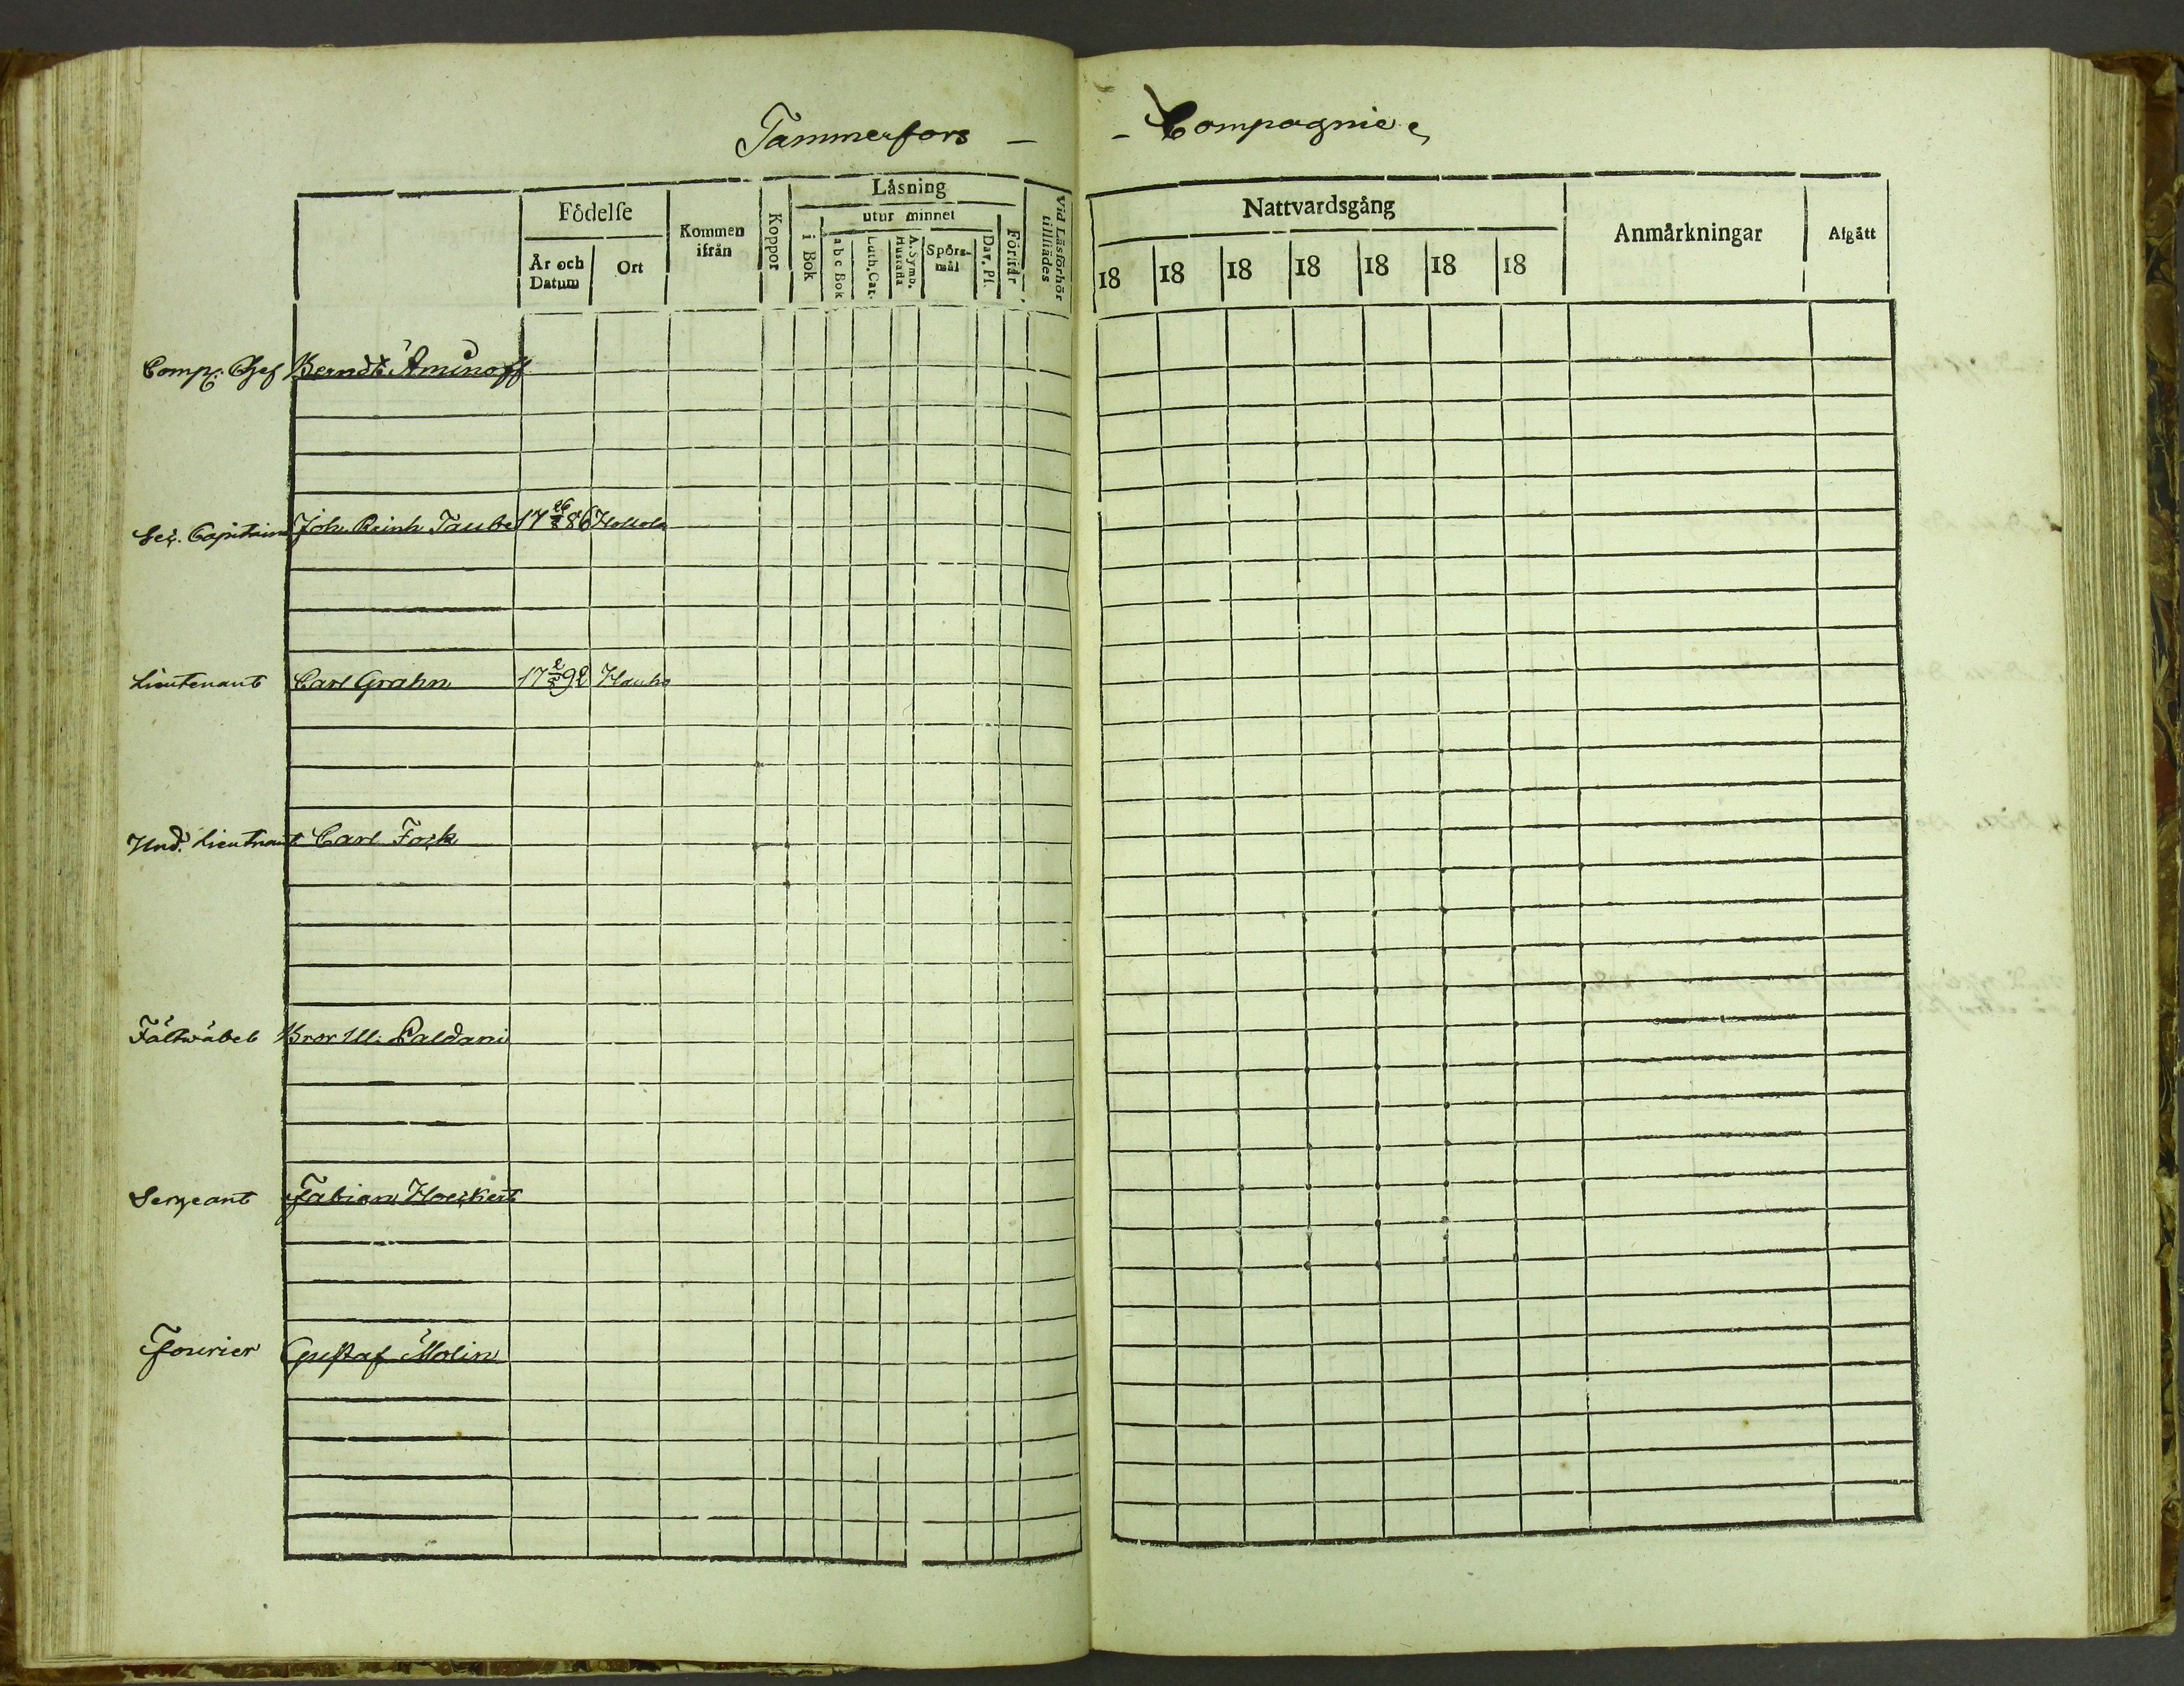 Tammerfors - - Compagnie
Födelse
Kommen ifrån
Koppor
Läsning
utur minnet
i Bok
abc Bok
Luth. Cat.
A. Symb. Hustafla
Spörsmål
Dav. Ps.
Förstår
Vid Läsförhör tillstädes
År och Datum
Ort
Nattvardsgång
Anmärkningar
Afgått
18 18 18 18 18 18 18
Comp: Chef Berndt Aminoff
Sec. Capitaine Joh. Reinh Taube 17 26/8 86 Hollola
Lieutenant Carl Grahn 17 2/5 92 Hauho
Und. Lieutnant Carl Fock
Fältwäbel Bror Ul. Paldani
Sergeant Fabian Hoeckert
Fourier Gustaf Molin